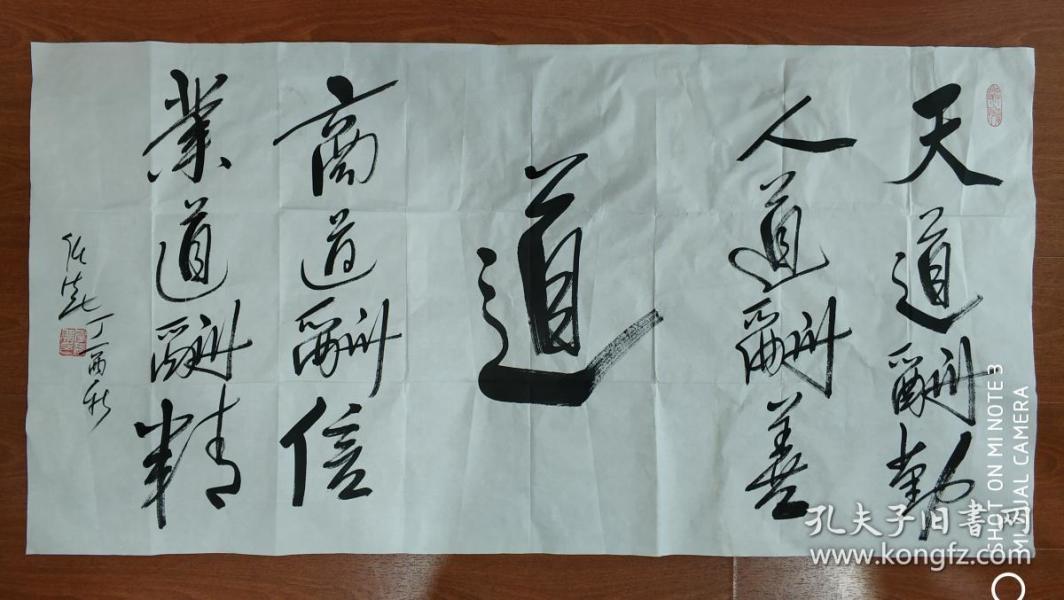 天道酬勤
人道酬善
道
商道酬信
业道酬精
丁酉秋
孔夫子旧書网
www.kongfz.com
SHOT ON MI NOTE 3
MI DUAL CAMERA